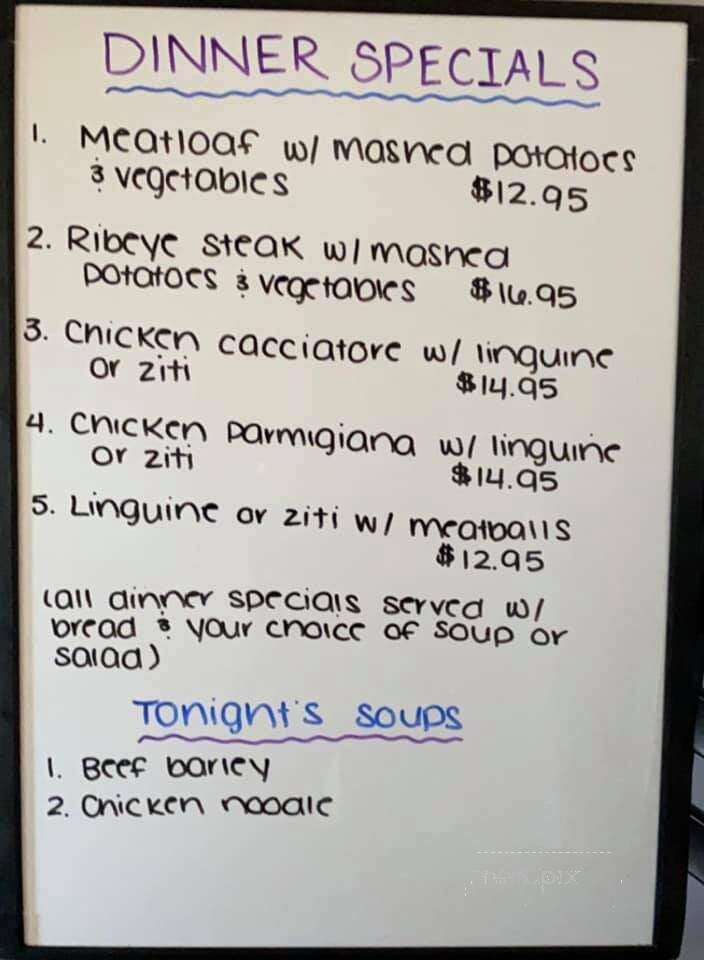 DINNER SPECIALS
1. Meatloaf w/ mashed potatoes
& vegetables $12.95
2. Ribeye steak w/ mashed
potatoes & vegetables $16.95
3. Chicken cacciatore w/ linguine
or ziti $14.95
4. Chicken parmigiana w/ linguine
or ziti $14.95
5. Linguine or ziti w/ meatballs
$12.95
(all dinner specials served w/
bread & your choice of soup or
salad)
Tonight's soups
1. Beef barley
2. Chicken noodle